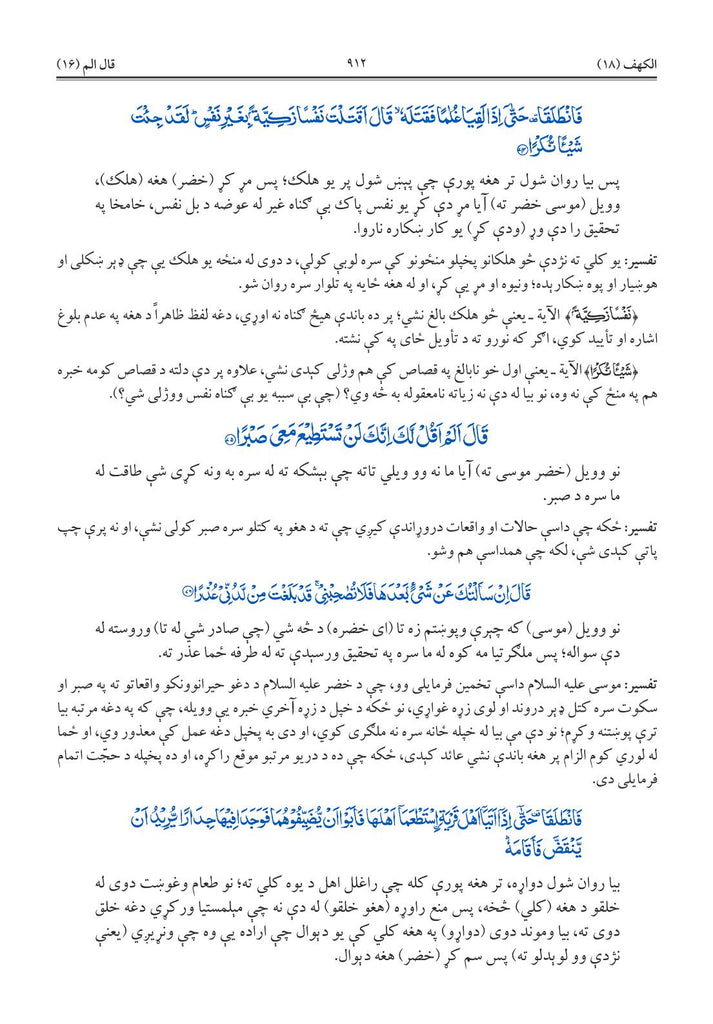 الکهف (۱۸) ۹۱۲ قال الم (۱۶)
فَانْطَلَقَا حَتّٰۤى اِذَا لَقِيَا غُلٰمًا فَقَتَلَهٗ ۙ قَالَ اَقَتَلْتَ نَفْسًا زَكِيَّةًۢ بِغَيْرِ نَفْسٍ ؕ لَقَدْ جِئْتَ
شَيْـًٔا نُّكْرًا ﴿۷۴﴾
پس بیا روان شول تر هغه پورې چې پېښ شول پر یو هلک؛ پس مړ کړ (خضر) هغه (هلک)،
وویل (موسی خضر ته) آیا مړ دې کړ یو نفس پاک بې ګناه غیر له عوضه د بل نفس، خامخا په
تحقیق را دې وړ (ودې کړ) یو کار ښکاره ناروا.
تفسیر: یو کلي ته نژدې څو هلکانو پخپلو منځونو کې سره لوبې کولې، د دوی له منځه یو هلک یې چې ډېر ښکلی او
هوښیار او پوه ښکارېده؛ ونیوه او مړ یې کړ، او له هغه ځایه په تلوار سره روان شو.
﴿نَفْسًا زَكِيَّةًۢ﴾ الآية ـ یعنې څو هلک بالغ نشي؛ پر ده باندې هیڅ ګناه نه اوړي، دغه لفظ ظاهراً د هغه په عدم بلوغ
اشاره او تأیید کوي، اګر که نورو ته د تأویل ځای په کې نشته.
﴿شَيْـًٔا نُّكْرًا﴾ الآية ـ یعنې اول خو نابالغ په قصاص کې هم وژلی کېدی نشي، علاوه پر دې دلته د قصاص کومه خبره
هم په منځ کې نه وه، نو بیا له دې نه زیاته نامعقوله به څه وي؟ (چې بې سببه یو بې ګناه نفس ووژلی شي؟).
قَالَ اَلَمْ اَقُلْ لَّكَ اِنَّكَ لَنْ تَسْتَطِيْعَ مَعِيَ صَبْرًا ﴿۷۵﴾
نو وویل (خضر موسی ته) آیا ما نه وو ویلي تاته چې بېشکه ته له سره به ونه کړی شې طاقت له
ما سره د صبر.
تفسیر: ځکه چې داسې حالات او واقعات درورړاندې کیږي چې ته د هغو په کتلو سره صبر کولی نشې، او نه پرې چپ
پاتې کېدی شې، لکه چې همداسې هم وشو.
قَالَ اِنْ سَاَلْتُكَ عَنْ شَيْءٍۭ بَعْدَهَا فَلَا تُصٰحِبْنِيْ ۚ قَدْ بَلَغْتَ مِنْ لَّدُنِّيْ عُذْرًا ﴿۷۶﴾
نو وویل (موسی) که چېرې وپوښتم زه تا (ای خضره) د څه شي (چې صادر شي له تا) وروسته له
دې سواله؛ پس ملګرتیا مه کوه له ما سره په تحقیق ورسېدې ته له طرفه ځما عذر ته.
تفسیر: موسی علیه السلام داسې تخمین فرمایلی وو، چې د خضر علیه السلام د دغو حیرانوونکو واقعاتو ته په صبر او
سکوت سره کتل ډېر دروند او لوی زړه غواړي، نو ځکه د خپل د زړه آخري خبره یې وویله، چې که په دغه مرتبه بیا
ترې پوښتنه وکړم؛ نو دې مې بیا له خپله ځانه سره نه ملګری کوي، او دی به پخپل دغه عمل کې معذور وي، او ځما
له لوري کوم الزام پر هغه باندې نشي عائد کېدی، ځکه چې ده د دریو مرتبو موقع راکړه، او ده پخپله د حجّت اتمام
فرمایلی دی.
فَانْطَلَقَا حَتّٰۤى اِذَاۤ اَتَيَاۤ اَهْلَ قَرْيَةِ ِۨاسْتَطْعَمَاۤ اَهْلَهَا فَاَبَوْا اَنْ يُّضَيِّفُوْهُمَا فَوَجَدَا فِيْهَا جِدَارًا يُّرِيْدُ اَنْ
يَّنْقَضَّ فَاَقَامَهٗ ؕ
بیا روان شول دواړه، تر هغه پورې کله چې راغلل اهل د یوه کلي ته؛ نو طعام وغوښت دوی له
خلقو د هغه (کلي) څخه، پس منع راوړه (هغو خلقو) له دې نه چې مېلمستیا ورکړي دغه خلق
دوی ته، بیا وموند دوی (دواړو) په هغه کلي کې یو دېوال چې اراده یې وه چې ونړیږي (یعنې
نژدې وو لوېدلو ته) پس سم کړ (خضر) هغه دېوال.